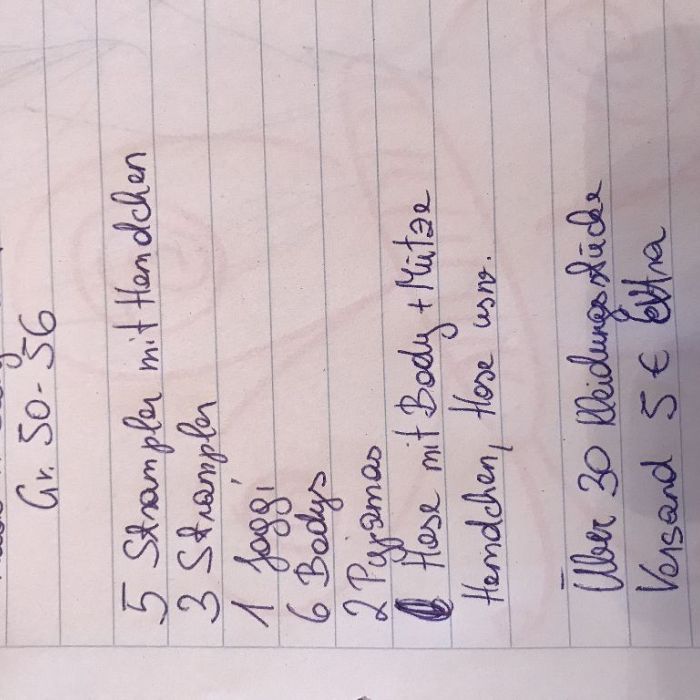 Gr. 50-56
5 Strampler mit Hemdchen
3 Strampler
1 Jaggi
6 Bodys
2 Pyjamas
Hose mit Body + Mütze
Hemdchen, Hose usw.
Über 30 Kleidungsstücke
Versand 5 € extra